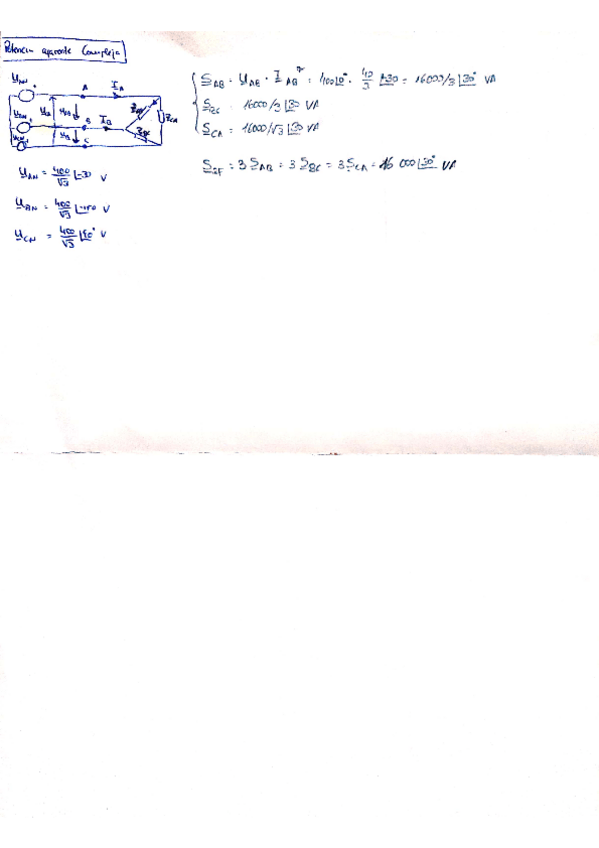 Potencia aparente Compleja
U_AN A I_A
Z_CA
U_BN B I_B Z_BC
U_CN C
U_AN = 400/√3 |-30 V
U_BN = 400/√3 |-150 V
U_CN = 400/√3 |90° V
S_AB = U_AB · I_AB* = 400|0° · 40/3 |+30 = 16000/3 |30° VA
S_BC = 16000/3 |30 VA
S_CA = 16000/√3 |30 VA
S_3F = 3 S_AB = 3 S_BC = 3 S_CA = 16 000 |30° VA